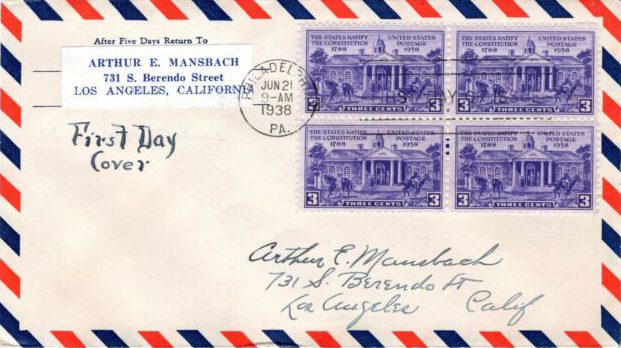 After Five Days Return To
ARTHUR E. MANSBACH
731 S. Berendo Street
LOS ANGELES, CALIFORNIA
First Day
Cover
PHILADELPHIA
JUN 21
9-AM
1938
PA.
THE STATES RATIFY THE CONSTITUTION 1788
UNITED STATES POSTAGE 1938
3 THREE CENTS 3
THE STATES RATIFY THE CONSTITUTION 1788
UNITED STATES POSTAGE 1938
3 THREE CENTS 3
THE STATES RATIFY THE CONSTITUTION 1788
UNITED STATES POSTAGE 1938
3 THREE CENTS 3
THE STATES RATIFY THE CONSTITUTION 1788
UNITED STATES POSTAGE 1938
3 THREE CENTS 3
Arthur E. Mansbach
731 S. Berendo St
Los Angeles Calif